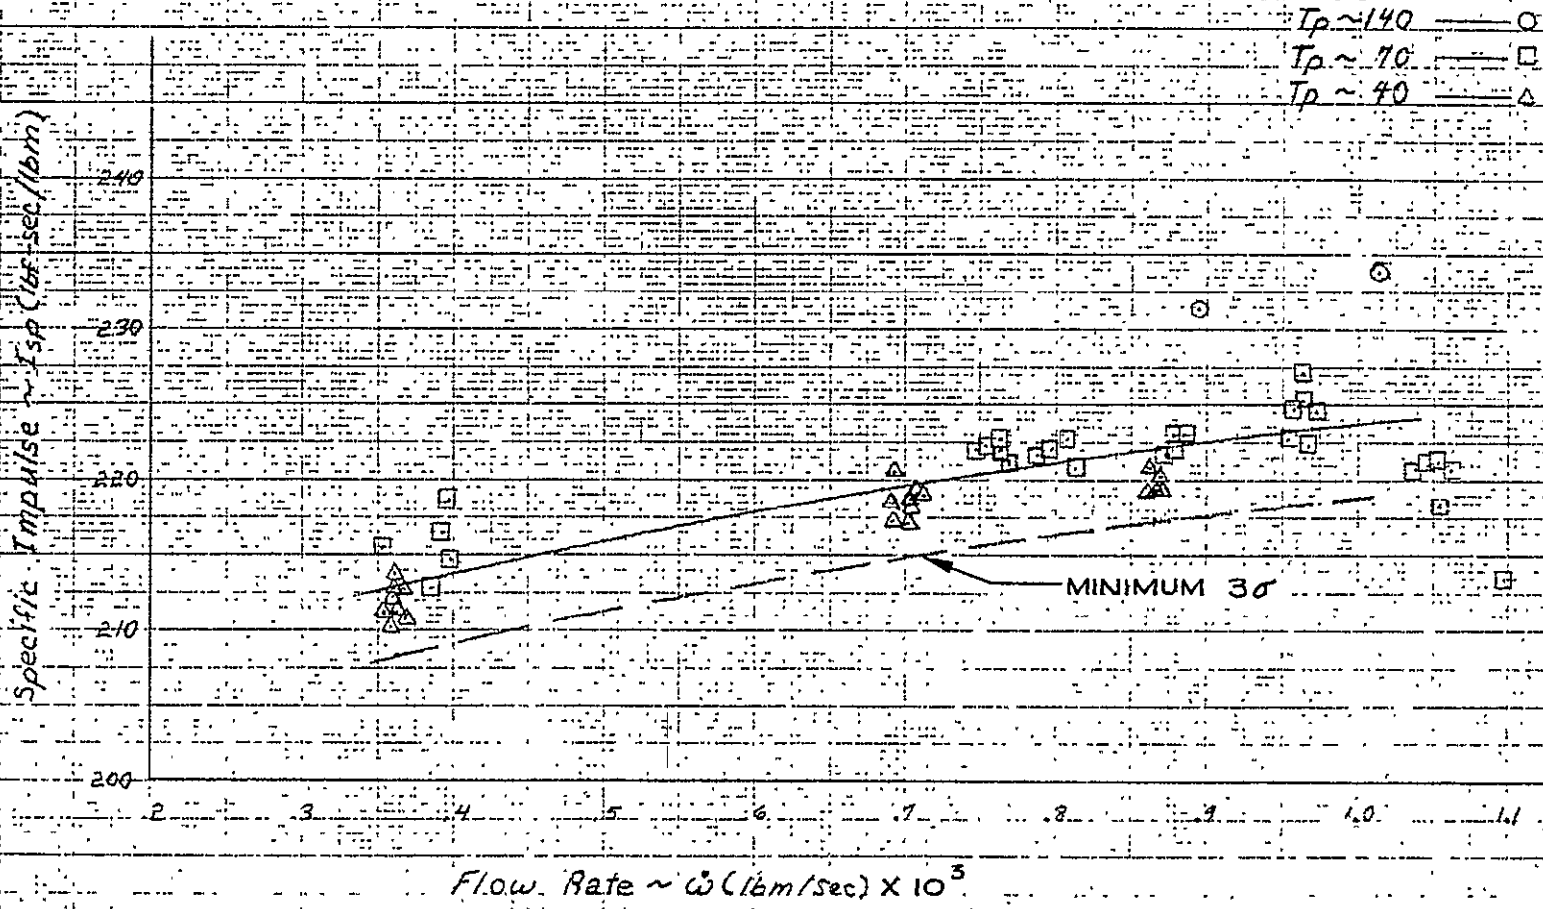 Tp ~ 140
Tp ~ 70
Tp ~ 40
Specific Impulse ~ Isp (lbf-sec/lbm)
240
230
220
210
200
MINIMUM 3σ
.2 .3 .4 .5 .6 .7 .8 .9 1.0 1.1
Flow Rate ~ ẇ (lbm/sec) X 10³